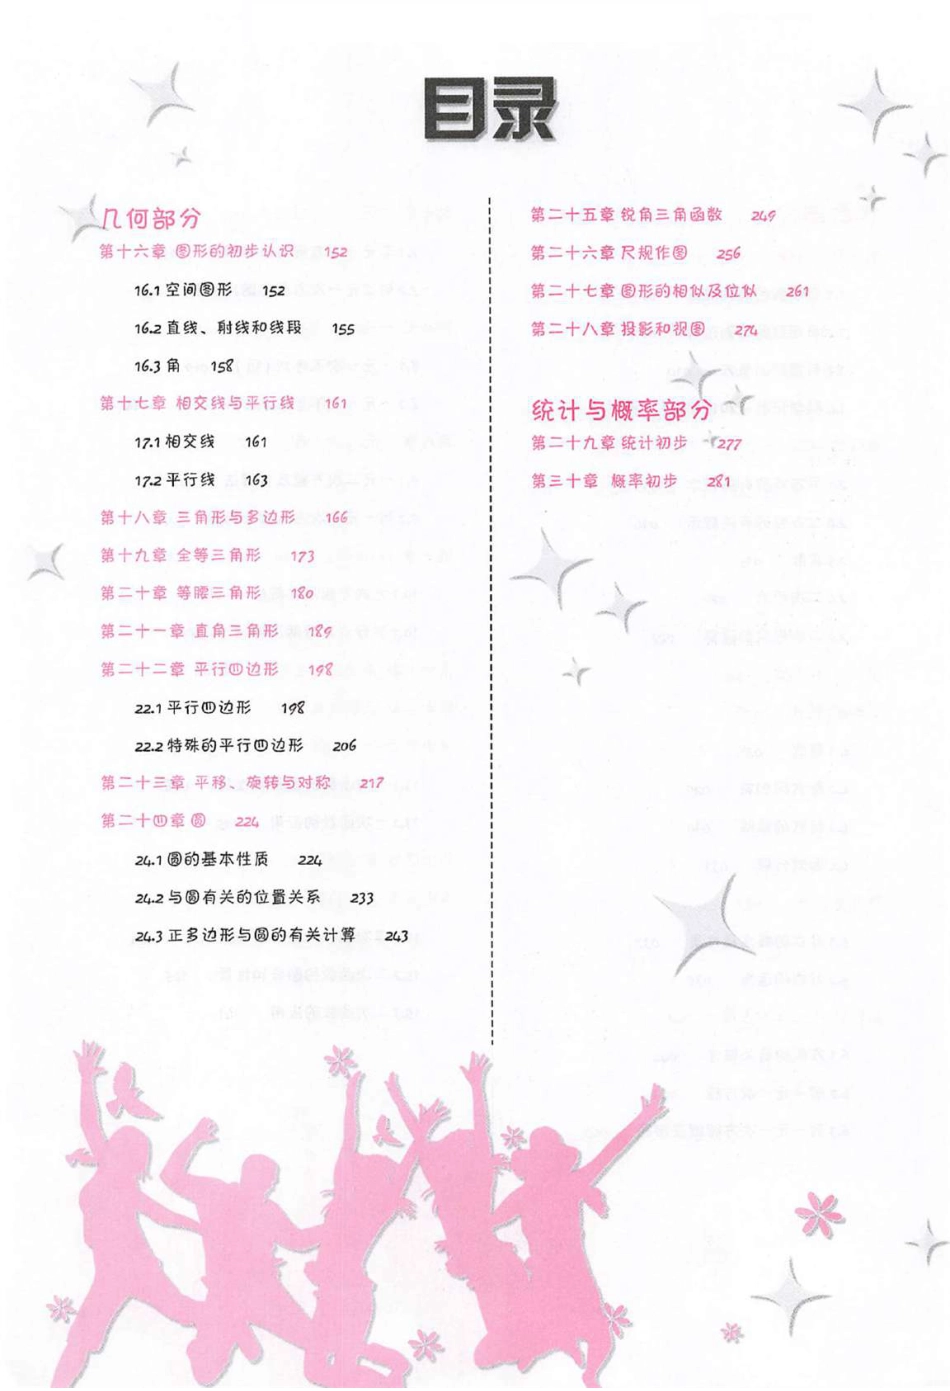 目录
几何部分
第十六章 图形的初步认识 152
16.1 空间图形 152
16.2 直线、射线和线段 155
16.3 角 158
第十七章 相交线与平行线 161
17.1 相交线 161
17.2 平行线 163
第十八章 三角形与多边形 166
第十九章 全等三角形 173
第二十章 等腰三角形 180
第二十一章 直角三角形 189
第二十二章 平行四边形 198
22.1 平行四边形 198
22.2 特殊的平行四边形 206
第二十三章 平移、旋转与对称 217
第二十四章 圆 224
24.1 圆的基本性质 224
24.2 与圆有关的位置关系 233
24.3 正多边形与圆的有关计算 243
第二十五章 锐角三角函数 249
第二十六章 尺规作图 256
第二十七章 图形的相似及位似 261
第二十八章 投影和视图 274
统计与概率部分
第二十九章 统计初步 277
第三十章 概率初步 281